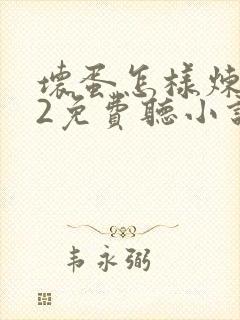 壞蛋怎樣煉
2免費聽小
韦永弼